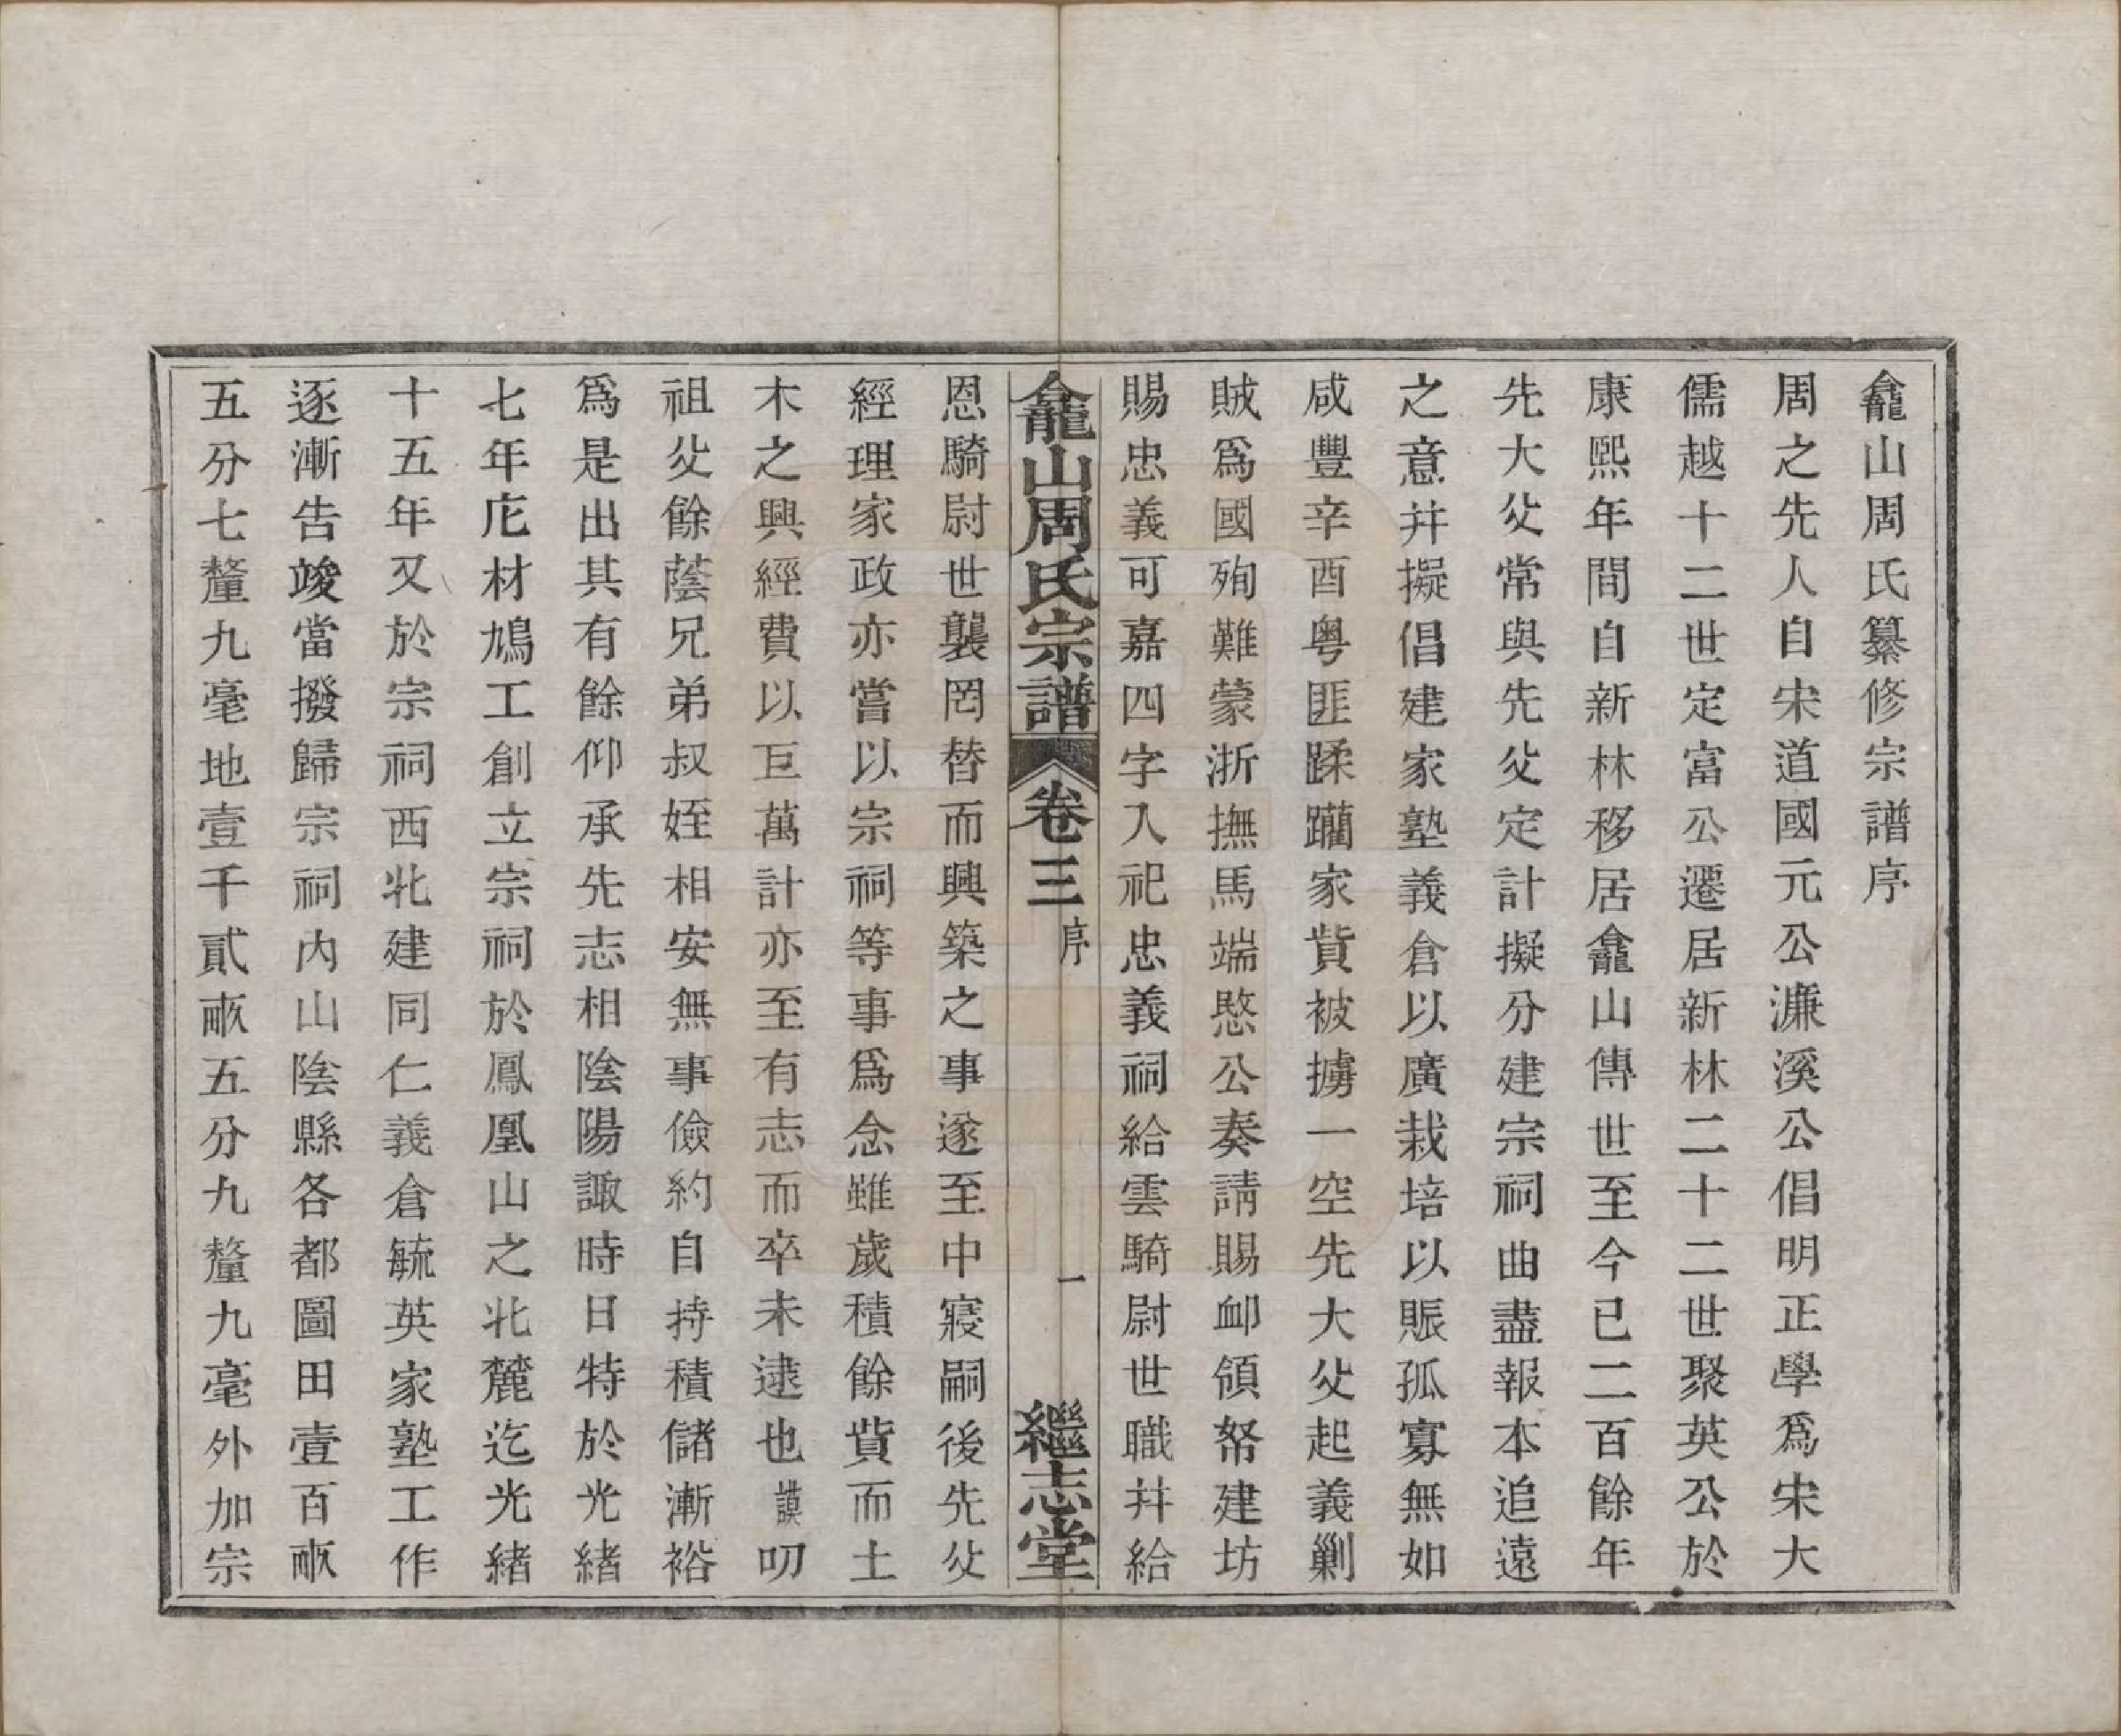 龕山周氏纂修宗譜序
周之先人自宋道國元公濂溪公倡明正學爲宋大
儒越十二世定富公遷居新林二十二世聚英公於
康熙年間自新林移居龕山傳世至今已二百餘年
先大父常與先父定計擬分建宗祠曲盡報本追遠
之意并擬倡建家塾義倉以廣栽培以賑孤寡無如
咸豐辛酉粤匪蹂躪家貲被擄一空先大父起義剿
賊爲國殉難蒙浙撫馬端愍公奏請賜卹領帑建坊
賜忠義可嘉四字入祀忠義祠給雲騎尉世職并給
龕山周氏宗譜 卷三 序 一 繼志堂
恩騎尉世襲罔替而興築之事遂至中寢嗣後先父
經理家政亦嘗以宗祠等事爲念雖歲積餘貲而土
木之興經費以巨萬計亦至有志而卒未逮也謨叨
祖父餘蔭兄弟叔姪相安無事儉約自持積儲漸裕
爲是出其有餘仰承先志相陰陽諏時日特於光緒
七年庀材鳩工創立宗祠於鳳凰山之北麓迄光緒
十五年又於宗祠西北建同仁義倉毓英家塾工作
逐漸告竣當撥歸宗祠內山陰縣各都圖田壹百畝
五分七釐九毫地壹千貳畝五分九釐九毫外加宗